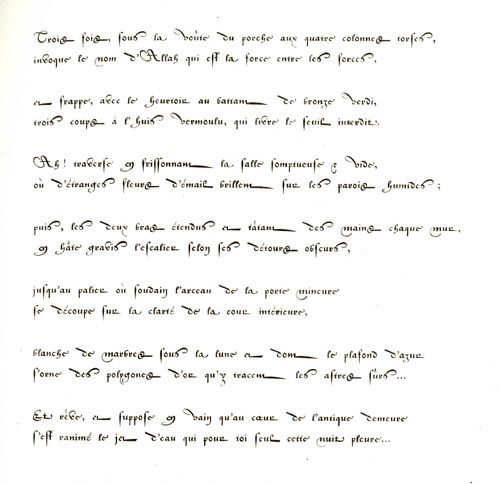 Trois fois, sous la voûte du porche aux quatre colonnes torses,
invoque le nom d'Allah qui est la force entre les forces,
et frappe, avec le heurtoir au battant de bronze verdi,
trois coups à l'huis vermoulu, qui livre le seuil interdit.
Ah ! traverse en frissonnant la salle somptueuse & vide,
où d'étranges fleurs d'émail brillent sur les parois humides ;
puis, les deux bras étendus et tâtant des mains chaque mur,
en hâte gravis l'escalier selon ses détours obscurs,
jusqu'au palier où soudain l'arceau de la porte mineure
se découpe sur la clarté de la cour intérieure,
blanche de marbres sous la lune et dont le plafond d'azur
s'orne des polygones d'or qu'y tracent les astres sûrs...
Et rêve, et suppose en vain qu'au cœur de l'antique demeure
s'est ranimé le jet d'eau qui pour toi seul cette nuit pleure...